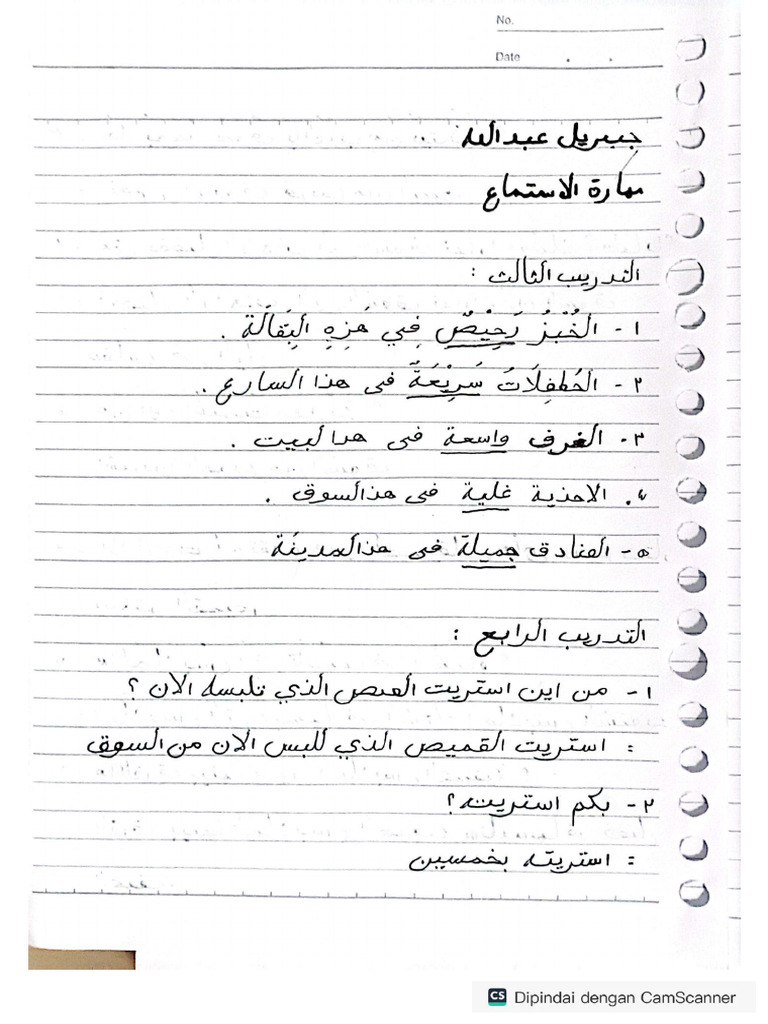 No.
Date
جبريل عبد الله
مهارة الاستماع
التدريب الثالث :
١- الخُبْزُ رَحِيْصٌ فِي هَزِهِ البِقَالَةَ .
٢- الحَافِلَاتُ سَرِيْعَةٌ فى هذا السارع .
٣- الغرف واسعة فى هدا لبيت .
٤. الاحذية غلية فى هذالسوق .
٥- الفنادق جميلة فى هذالمدينة
التدريب الرابع :
١- من اين استريت القميص الذي تلبسه الان ؟
: استريت القميص الذي للبس الان من السوق
٢- بكم استريته ؟
: استريته بخمسين
CS Dipindai dengan CamScanner